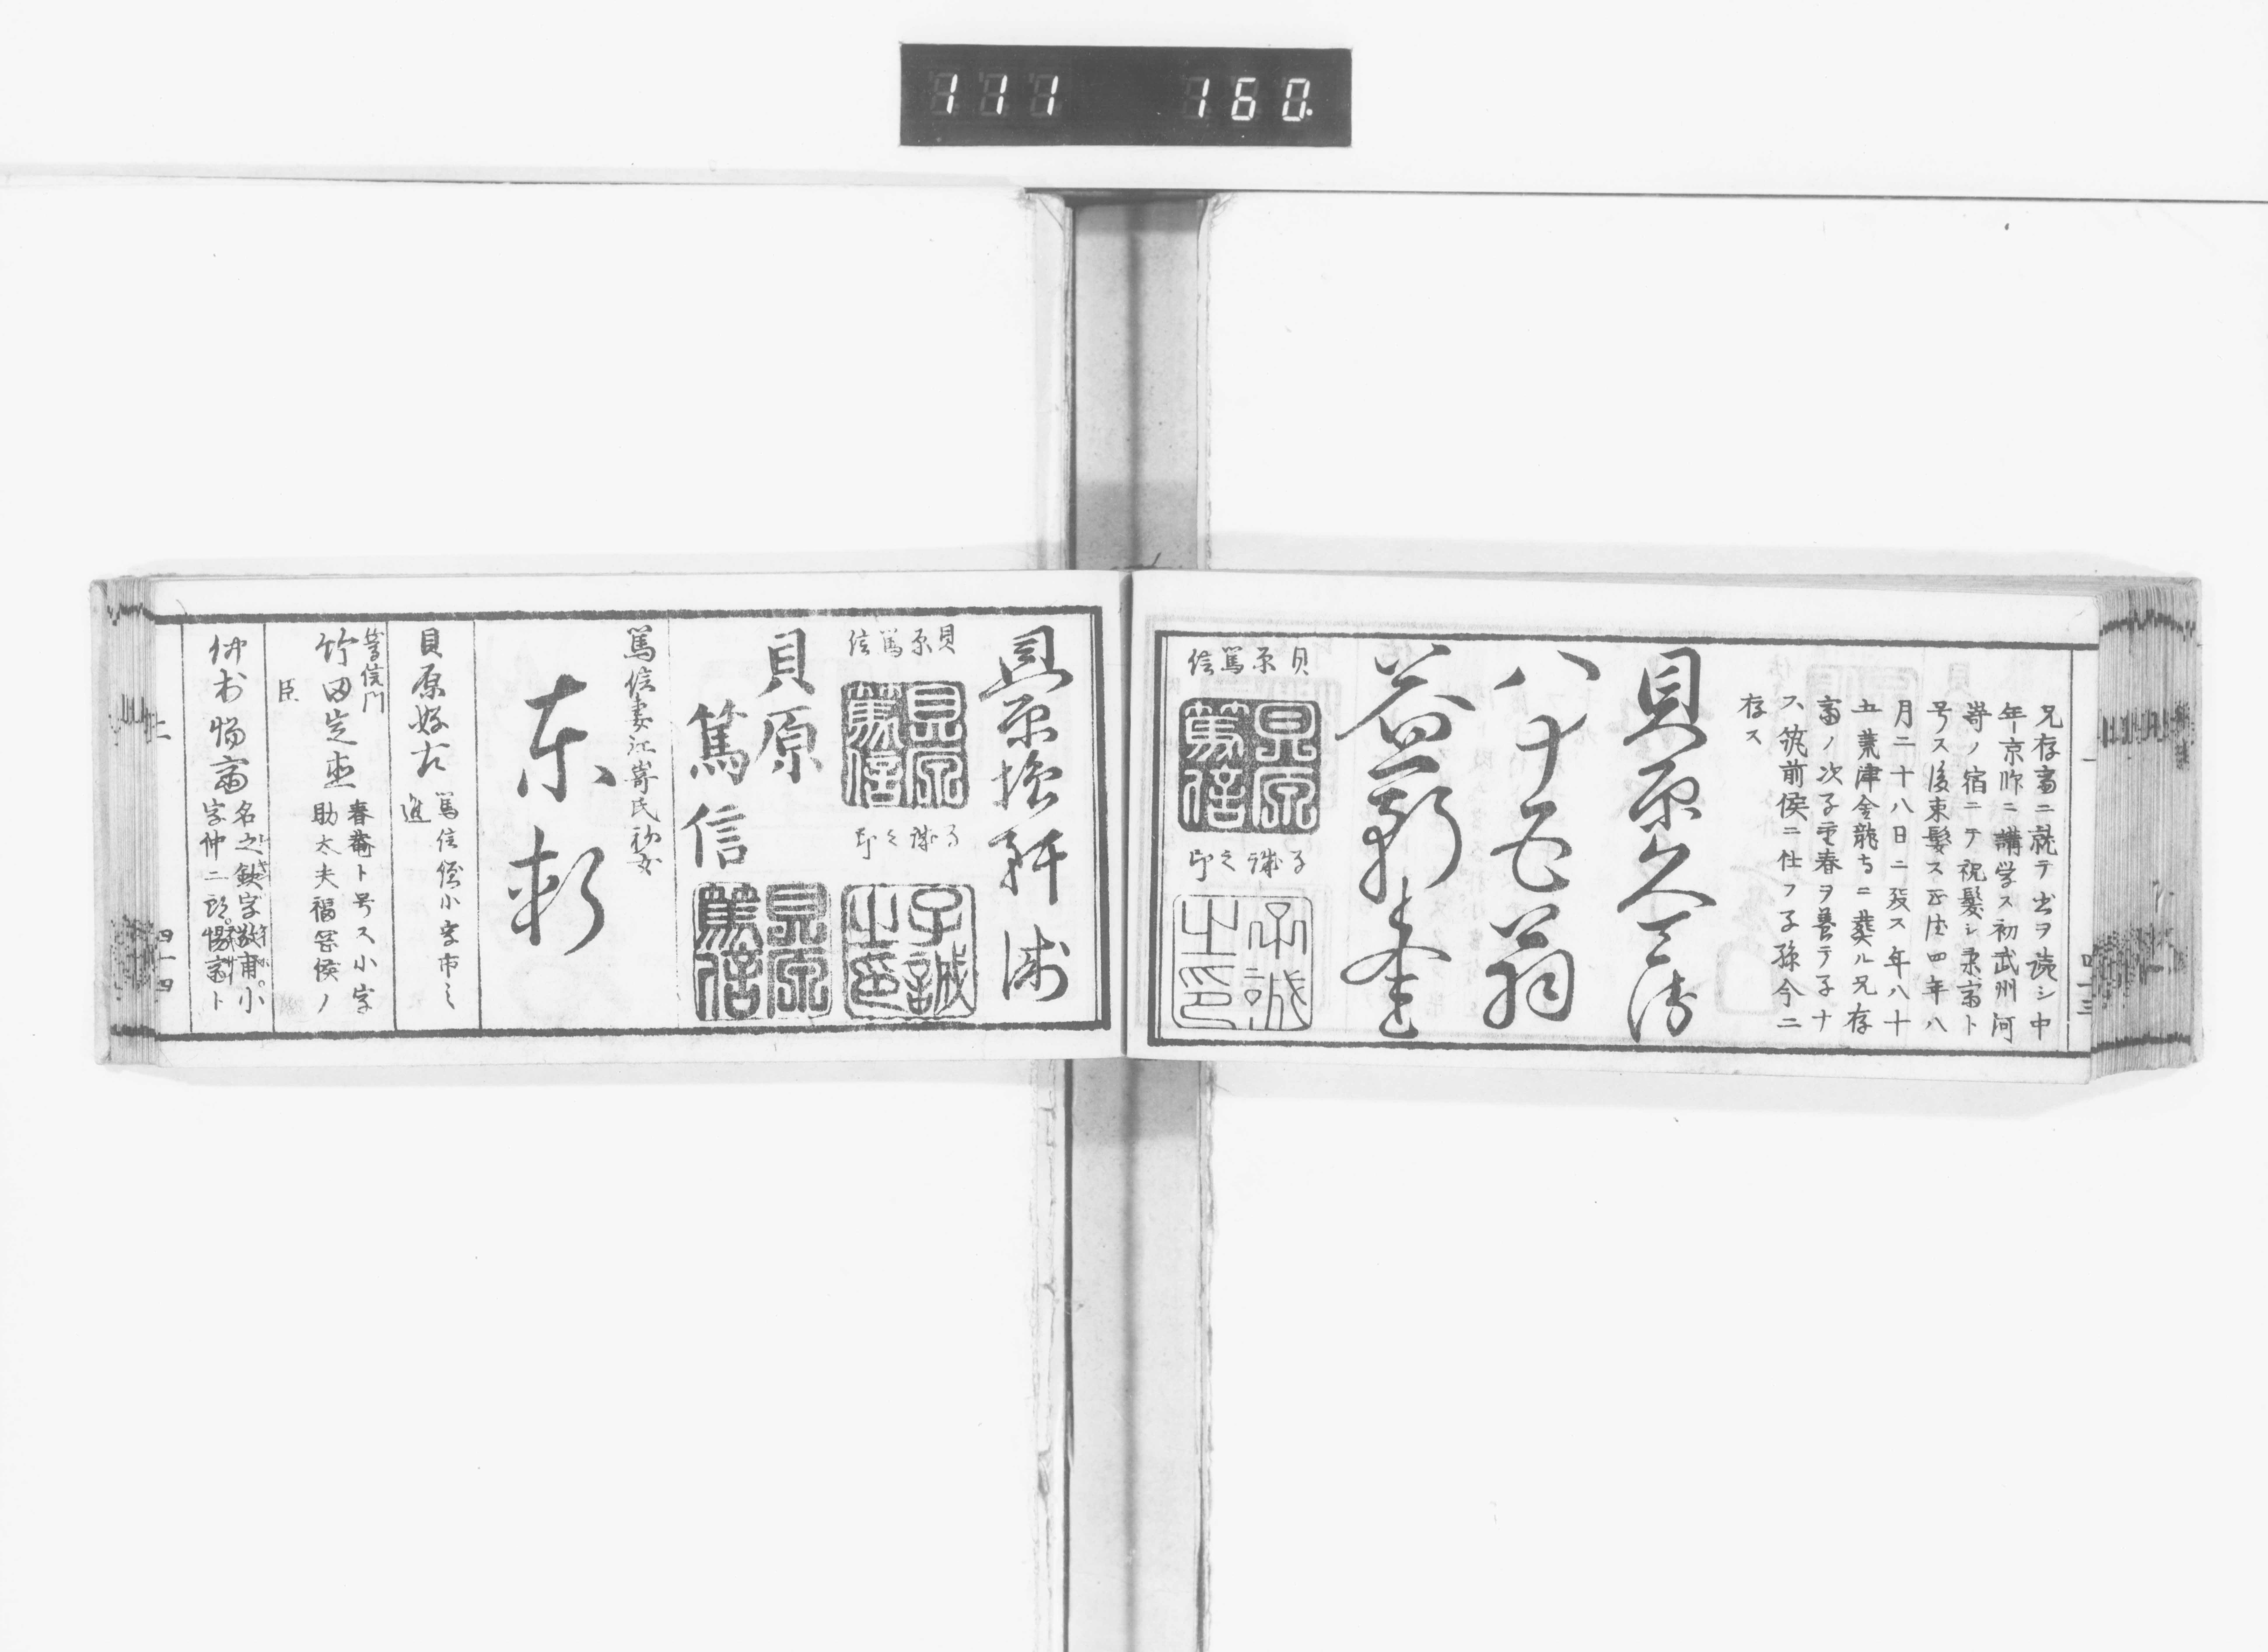 111 160.
兄存斎ニ就テ書ヲ読シ中
年京師ニ講学ス初武州河
嵜ノ宿ニテ祝髪シ柔斎ト
号ス後束髪ス正徳四年八
月二十八日ニ歿ス年八十
五荒津金龍寺ニ葬ル兄存
斎ノ次子重春ヲ養テ子ナ
ス筑前侯ニ仕フ子孫今ニ
存ス
貝原久兵衛
八十五翁
益軒書
貝原篤信
貝原篤信
子誠之印
子誠之印
四十三
貝原損軒
貝原篤信
貝原篤信
子誠之印
子誠之印
貝原
篤信
貝原篤信
篤信妻江嵜氏初女
東軒
貝原好古
篤信侄小字市之
進
篤信門
竹田定直
春菴ト号ス小字
助太夫福岡侯ノ
臣
伊藤惕斎
名之
字敬甫小
字仲二郎惕斎ト
四十四